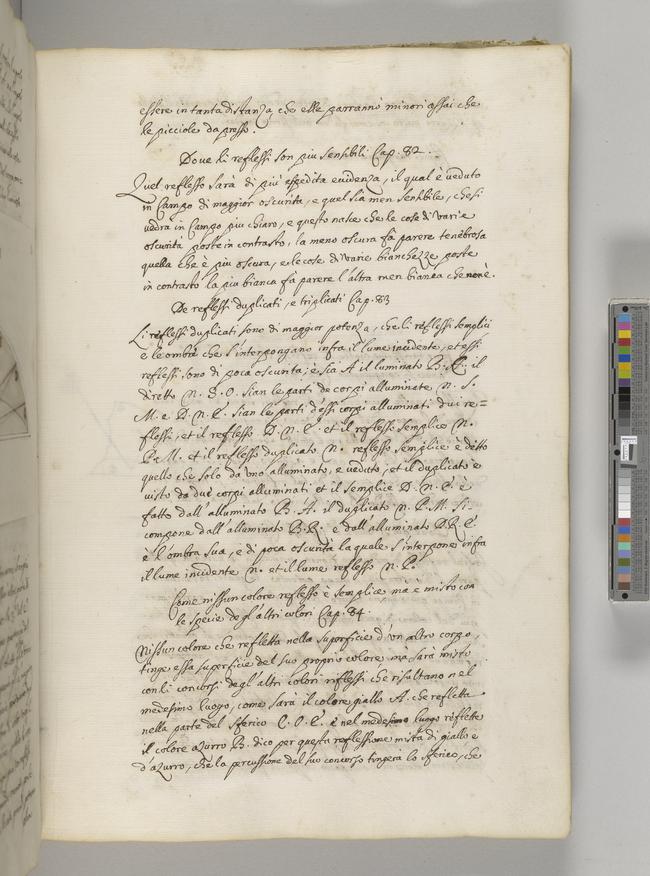 essere in tanta distanza che elle parranno minori assai che
le picciole da presso.
Doue li reflessi son piu sensibili Cap. 82.
Quel reflesso sarà di più espedita euidenza, il qual è ueduto
in Campo di maggior oscurità, e quel sia men sensibile, che si
uedra in Campo piu chiaro, e questo nasce che le cose di varie
oscurità poste in contrasto, la meno oscura fà parere tenebrosa
quella che è più oscura, e le cose di varie bianchezze poste
in contrasto la piu bianca fà parere l'altra men bianca che non è.
De reflessi duplicati, e triplicati Cap. 83
Li reflessi duplicati sono di maggior potenza, che li reflessi semplici
e le ombre che s'interpongano infra il lume incidente, et essi
reflessi sono di poca oscurità; e sia A il luminato il
diretto N. S. O. sian le parti de corpi alluminate N. S.
M. e D. N. E. sian le parti d'essi corpi alluminati dui re=
flessi, et il reflesso D. N. E. et il reflesso semplice N.
et il reflesso duplicato N. reflesso semplice è detto
quello che solo da uno alluminato, e ueduto, et il duplicato è
uisto da due corpi alluminati et il semplice D. N. E. è
fatto dall'alluminato B. A. il duplicato N. P. M. si
compone dall'alluminato e dall'alluminato
è l'ombra sua, e di poca oscurità la quale s'interpone infra
il lume incidente N. et il lume reflesso N. P.
Come nissun colore reflesso è semplice, mà è misto con
le specie degl'altri colori Cap. 84.
Nissun colore che refletta nella superficie d'un altro corpo,
tinge essa superficie del suo proprio colore, mà sarà misto
con li concorsi degl'altri colori riflessi che risaltano nel
medesimo luogo, come sarà il colore giallo A. che refletta
nella parte del sferico C. O. E. è nel medesimo luogo reflette
il colore azurro B. dico per questa reflessione mista di giallo e
d'azurro, che la percussione del suo concorso tingerà lo sferico, che